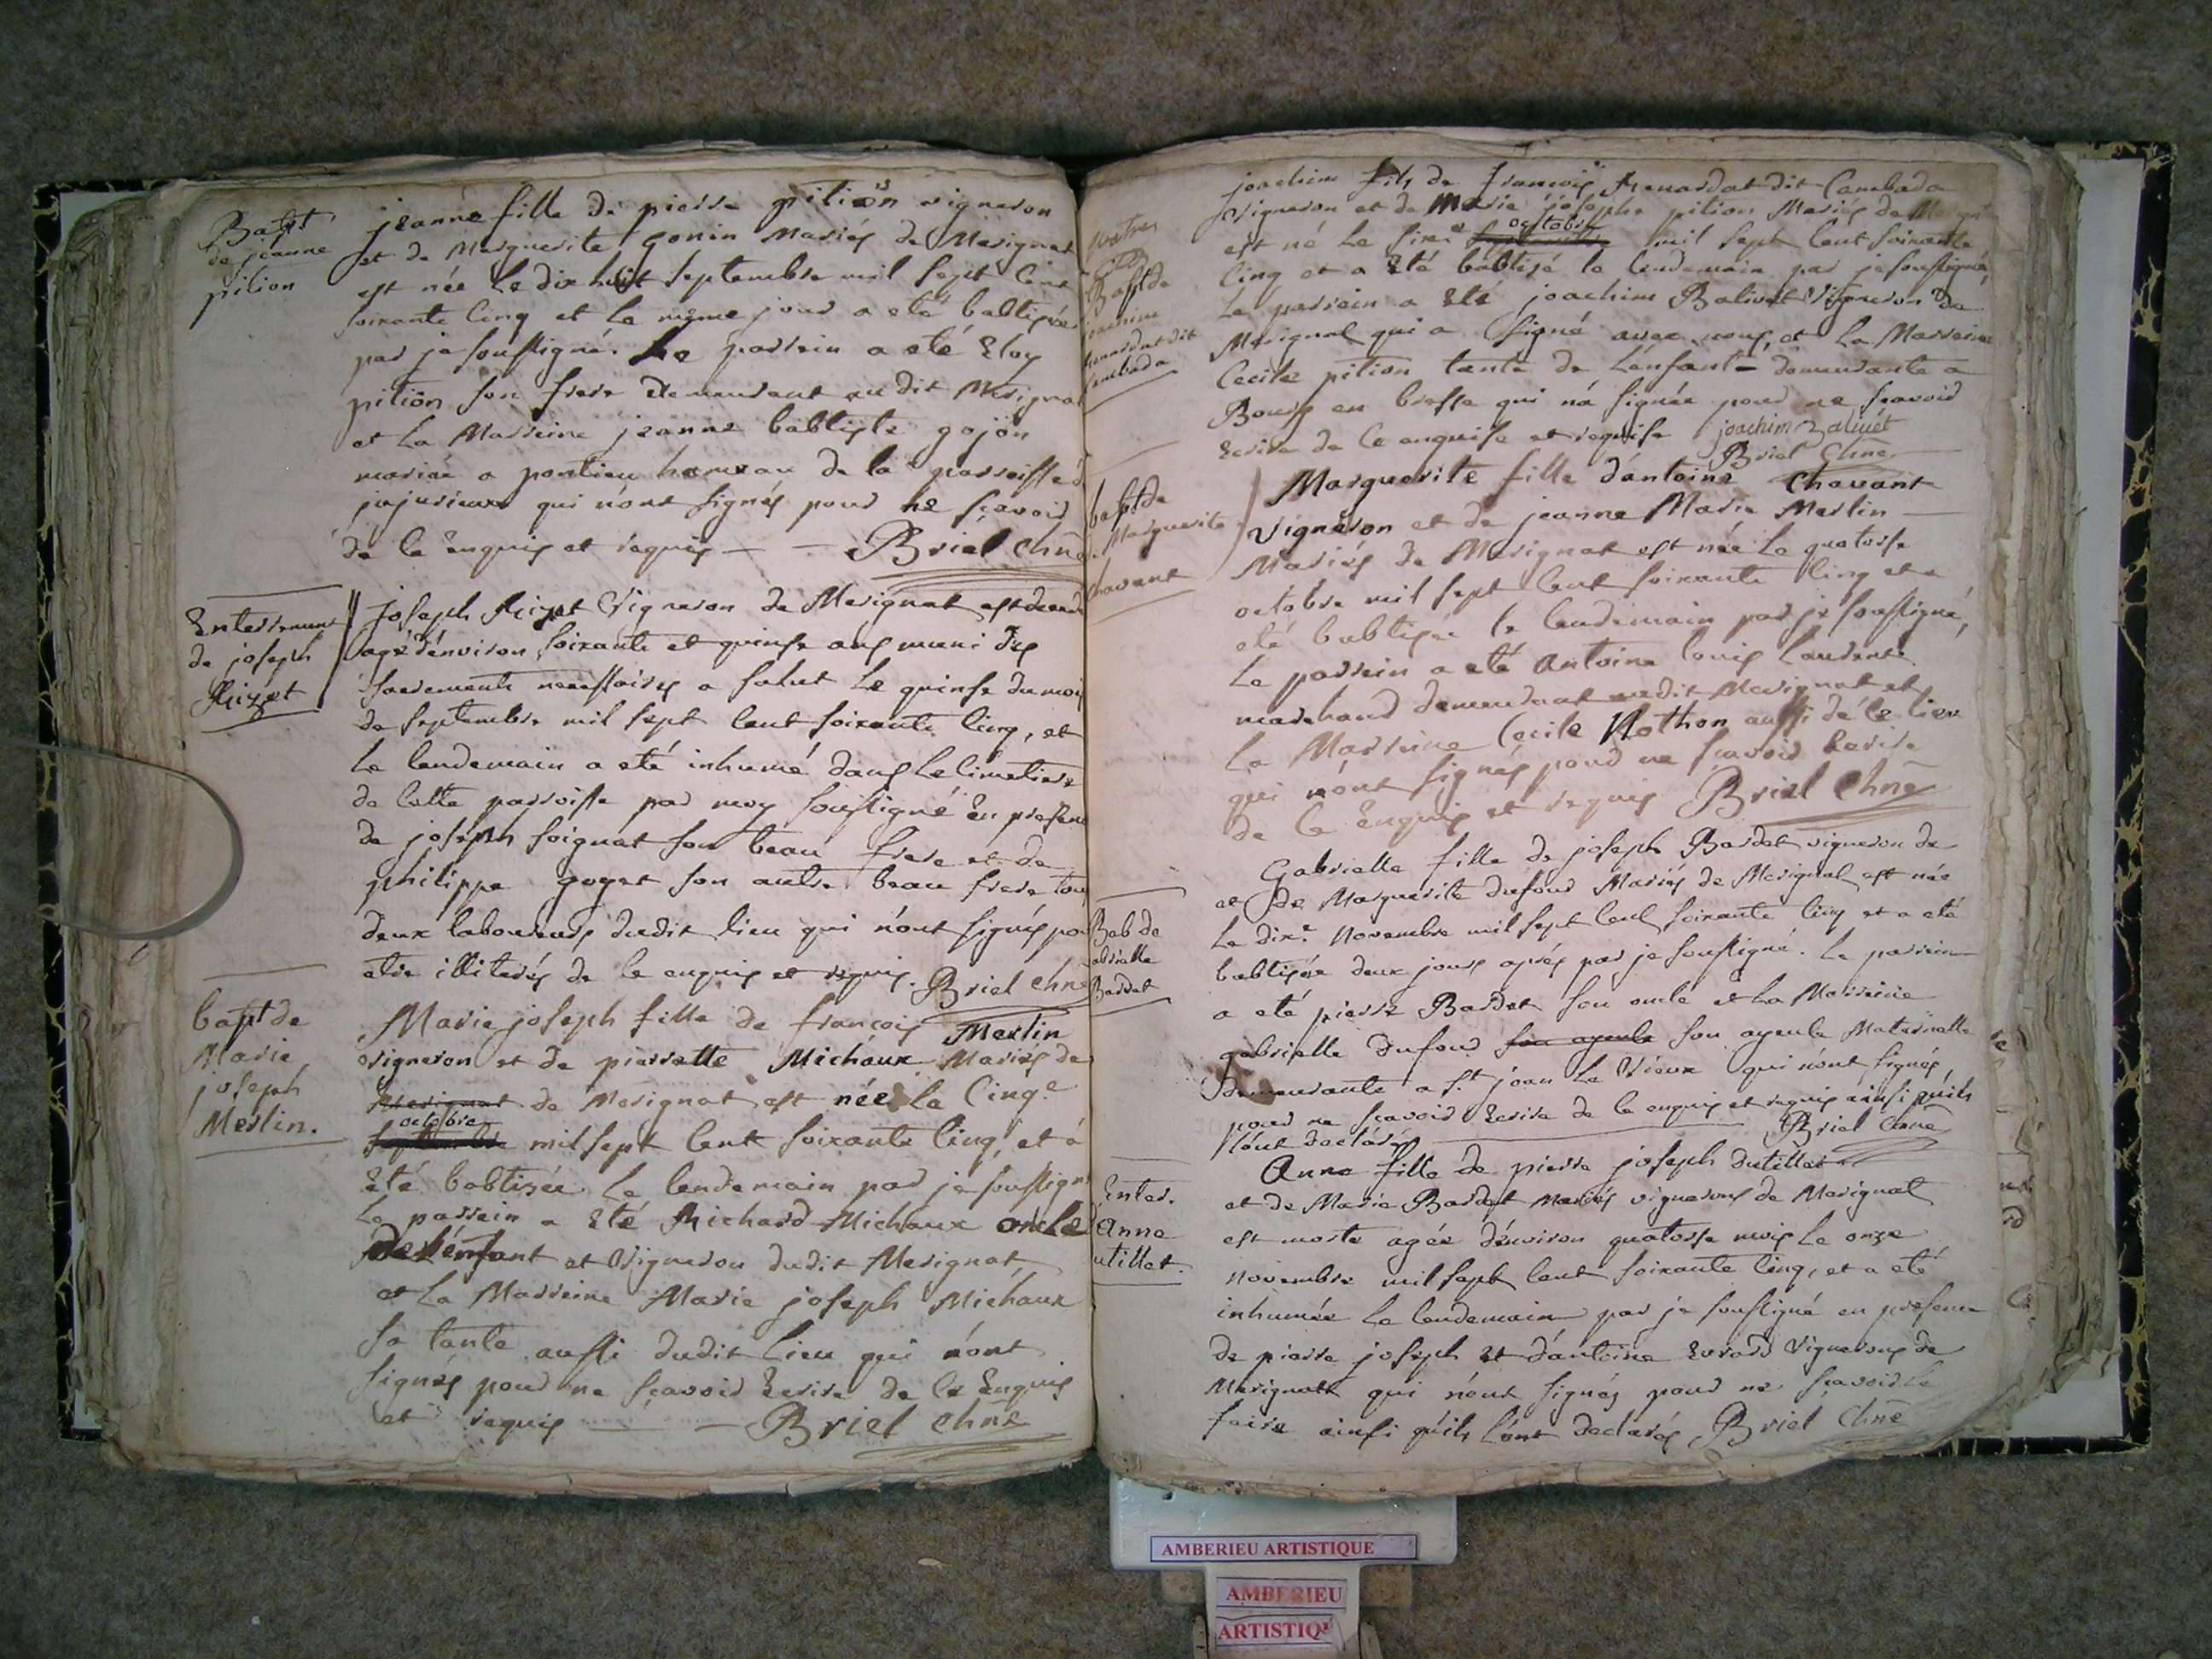 Bapt
de jeanne
pition
jeanne fille de pierre pition vigneron
et de Marguerite Gonin Mariés de Merignat
est née Le dix huit Septembre mil sept Cent
soixante Cinq et Le même jour a eté babtisée
par je soussigné. Le parrein a eté Eloy
pition son frere demeurant audit Merignat
et La Marreine jeanne babtiste gojon
mariée a pontieu hameau de la parroisse d
jujurieux qui n'ont signés pour ne sçavoir
de ce enquis et requis — — Briel Chne
Enterrement
de joseph
Rizet
Joseph Rizet Vigneron de Merignat est decedé
agé d'environ soixante et quinse ans muni des
sacrements necessaires a salut Le quinse du mois
de septembre mil sept cent soixante cinq, et
Le lendemain a eté inhumé dans Le Cimetiere
de Cette parroisse par moy soussigné En presen
de joseph soignat son beau frere et de
philippe goyet son autre beau frere tou
deux laboureurs dudit lieu qui n'ont signés po
etre illiterés de ce enquis et requis. Briel chne
bapt de
Marie
joseph
Merlin.
Marie joseph fille de françois Merlin
vigneron et de pierrette Michaux Mariés de
Merignat de Merignat est née Le Cinq.e
octobre
septembre mil sept Cent soixante Cinq, et a
Eté babtisée Le lendemain par je soussign
Le parrein a Eté Richard Michaux oncle
De L'enfant et Vigneron dudit Merignat
et La Marreine Marie joseph Michaux
sa tante aussi dudit Lieu qui n'ont
signés pour ne sçavoir Ecrire de ce Enquis
et requis — — Briel Chne
Bapt de
joachim
renardat dit
Canebada
joachim fils de françois Renardat dit Canebada
Vigneron et de Marie josephe pition Mariés de
octobre
est né Le sixe septembre mil sept Cent soixante
Cinq et a Eté babtisé le lendemain par je soussigné,
Le parrein a Eté joachim Balivet Vigneron de
Merignat qui a signé avec nous, et La Marreine
Cecile pition tante de L'enfant demeurante a
Bourg en bresse qui n'a signée pour ne sçavoir
Ecrire de Ce enquise et requise joachim Balivet
Briel Chne
bapt de
Marguerite
chavant
Marguerite fille d'antoine Chavant
vigneron et de jeanne Marie Merlin —
Mariés de Merignat est née Le quatorse
octobre mil sept Cent soixante Cinq et a
eté babtisée le lendemain par je soussigné,
Le parrein a eté Antoine louis Laurent
marchand demeurant audit Merignat et
La Marreine Cecile Rothon aussi de ce lieu
qui n'ont signés pour ne sçavoir Ecrire
de Ce Enquis et requis Briel Chne
Bab de
abrielle
Bardet
Gabrielle fille de joseph Bardet vigneron de
et de Marguerite dufour Mariés de Merignat est née
Le dix.e Novembre mil sept Cent soixante Cinq et a eté
babtisée deux jours aprés par je soussigné. Le parrein
a eté pierre Bardet son oncle et La Marreine
gabrielle dufour son ayeule son ayeule Maternelle
Demeurante a st jean Le Vieux qui n'ont signés,
pour ne sçavoir Ecrire de ce enquis et requis ainsi qu'ils
l'ont declarés — Briel Chne
Enter.
d'Anne
utillet.
Anne fille de pierre joseph dutillet
et de Marie Bardet Mariés vignerons de Merignat
est morte agée d'environ quatorse mois Le onze
Novembre mil sept Cent soixante Cinq, et a eté
inhumée Le lendemain par je soussigné en presence
de pierre joseph et d'antoine Evrard Vignerons de
Merignat qui n'ont signés pour ne sçavoir Le
faire ainsi qu'ils L'ont declarés, Briel Chne
AMBERIEU ARTISTIQUE
AMBERIEU
ARTISTIQ